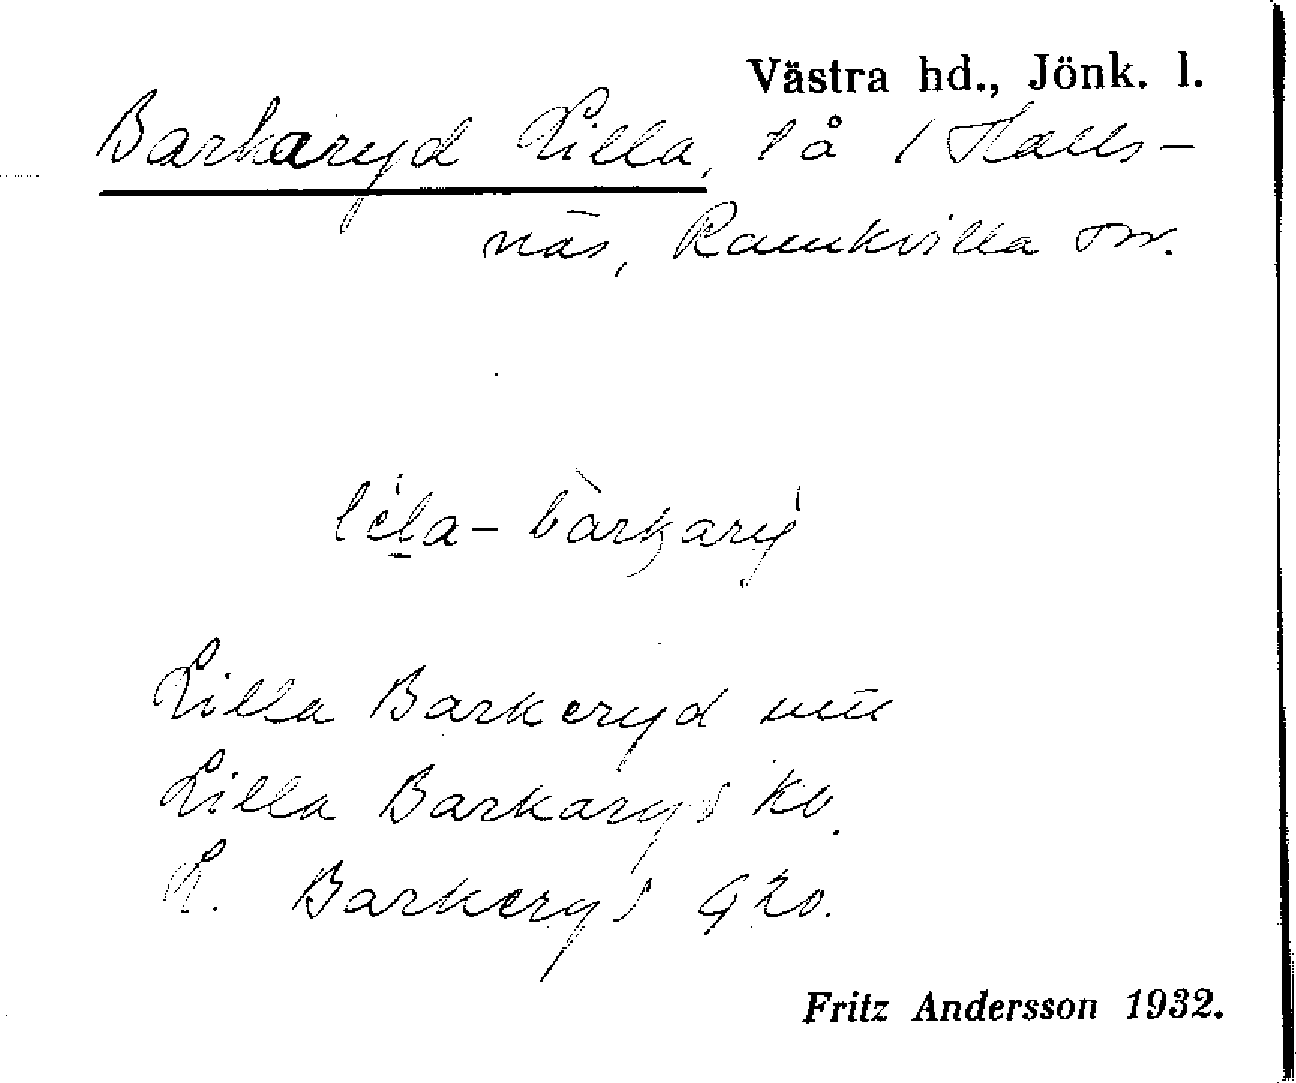 Västra hd., Jönk. l.
Barkaryd Lilla, tå i Halls-
näs, Ramkvilla sn.
lila - bàrkary
Lilla Barkeryd
Lilla Barkaryd
L. Barkeryd
Fritz Andersson 1932.